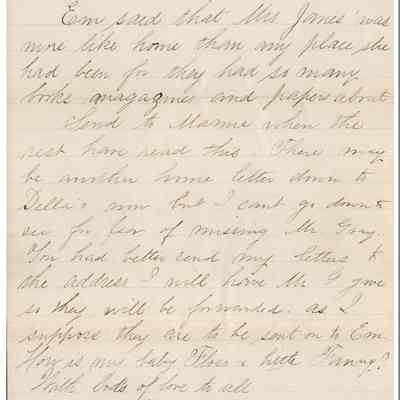 Em said that Mrs. James' was
more like home than any place she
had been for they had so many
books magazines and papers about
Send to Mamie when the
rest have read this. There may
be another home letter down to
Della's now but I cant go down to
see for fear of missing Mr. Gray.
You had better send my letters to
the address I will have Mr G give
so they will be forwarded. as I
suppose they are to be sent on to Em.
How is my baby Floss & little Fanny?
With lots of love to all